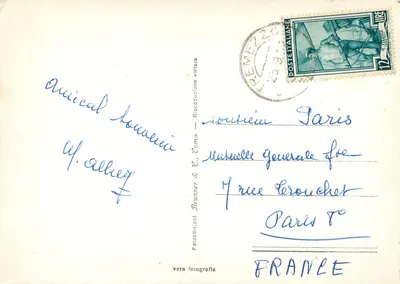 TREMEZZO
POSTE ITALIANE
12
Amical Souvenir
Monsieur Paris
Mutuelle Generale fse
7 rue Trouchet
Paris
FRANCE
Fotoedizioni Brunner & C. Como - Riproduzione vietata
vera fotografia